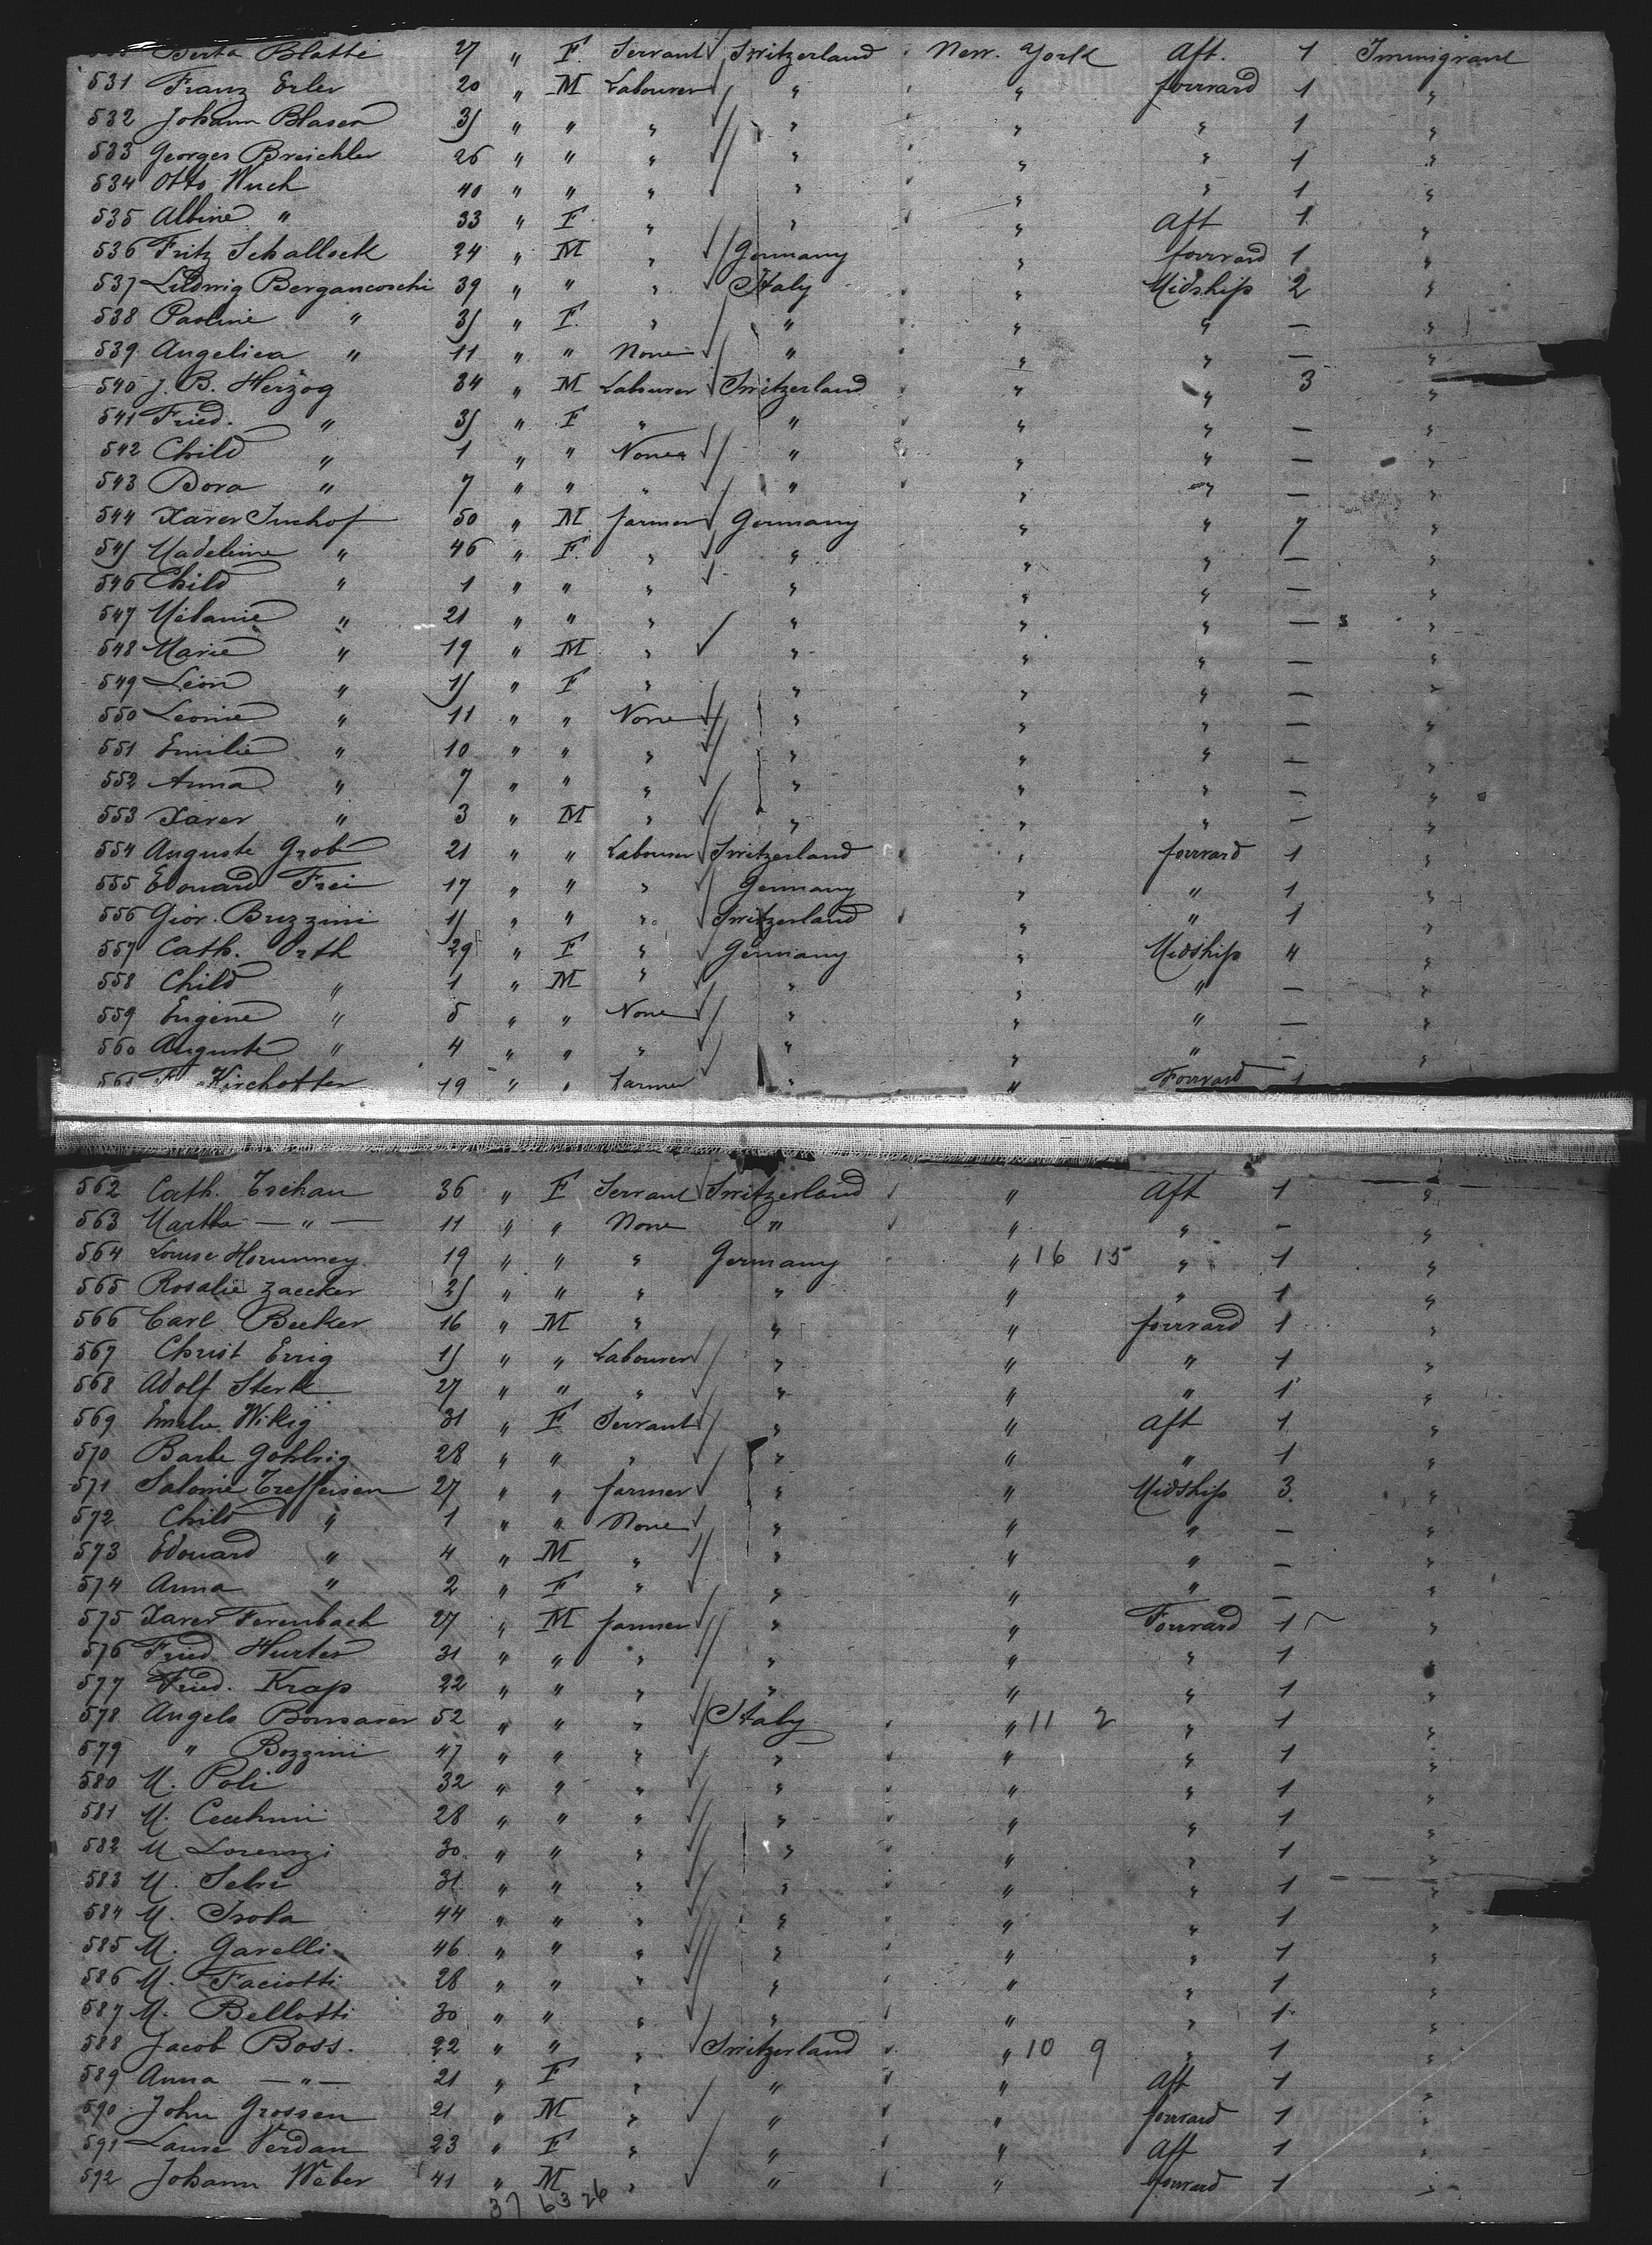 Berta Blatti 27 " F Servant Switzerland New York Aft. 1 Immigrant
531 Franz Erler 20 " M Labourer " " forward 1 "
532 Johann Blaser 35 " " " " " " 1 "
533 Georges Breichler 26 " " " " " " 1 "
534 Otto Wuch 40 " " " " " " 1 "
535 Albine " 33 " F " " " Aft 1 "
536 Fritz Schallock 24 " M " Germany " forward 1 "
537 Ludwig Bergancoschi 39 " " " Italy " Midship 2 "
538 Pauline " 35 " F " " " " — "
539 Angelica " 11 " " None " " " — "
540 J. B. Herzog 34 " M Labourer Switzerland " " 3 "
541 Fried. " 35 " F " " " " — "
542 Child " 1 " " None " " " — "
543 Dora " 7 " " " " " " — "
544 Xaver Imhof 50 " M farmer Germany " " 7 "
545 Madeleine " 46 " F. " " " " — "
546 Child " 1 " " " " " " — "
547 Mélanie " 21 " " " " " " — "
548 Marie " 19 " M " " " " — "
549 Léon " 15 " F " " " " — "
550 Leonie " 11 " " None " " " — "
551 Emilie " 10 " " " " " " — "
552 Anna " 7 " " " " " " — "
553 Xaver " 3 " M " " " " — "
554 Auguste Grob 21 " " Labourer Switzerland " forward 1 "
555 Edouard Frei 17 " " " Germany " " 1 "
556 Giov. Buzzini 15 " " " Switzerland " " 1 "
557 Cath. Orth 29 " F " Germany " Midship 4 "
558 Child " 1 " M " " " " — "
559 Eugène " 5 " " None " " " — "
560 Auguste " 4 " " " " " " — "
561 F. Kirchotter 19 " " farmer " " Forward 1
562 Cath. Tschan 36 " F Servant Switzerland " Aft 1 "
563 Martha — " — 11 " " None " " " — "
564 Louise Horunney 19 " " " Germany " 16 15 " 1 "
565 Rosalie Zaecker 25 " " " " " " 1 "
566 Carl Becker 16 " M " " " forward 1 "
567 Christ Errig 15 " " Labourer " " " 1 "
568 Adolf Sterk 27 " " " " " " 1 "
569 Emilie Wikig 31 " F Servant " " Aft 1 "
570 Barbe Gohlrig 28 " " " " " " 1 "
571 Salomé Treffeisen 27 " " farmer " " Midship 3 "
572 Child " 1 " " None " " " — "
573 Edouard " 4 " M " " " " — "
574 Anna " 2 " F " " " " — "
575 Xaver Ferenbach 27 " M farmer " " Forward 1 "
576 Fried Hurter 31 " " " " " " 1 "
577 Fried. Krap 22 " " " " " " 1 "
578 Angelo Bonsaver 52 " " " Italy " 11 2 " 1 "
579 " Bozzini 47 " " " " " " 1 "
580 M. Poli 32 " " " " " " 1 "
581 M. Cecchini 28 " " " " " " 1 "
582 M Lorenzi 30 " " " " " " 1 "
583 M. Selvi 31 " " " " " " 1 "
584 M. Isola 44 " " " " " " 1 "
585 M. Garelli 46 " " " " " " 1 "
586 M. Faciotti 28 " " " " " " 1 "
587 M. Bellotti 30 " " " " " " 1 "
588 Jacob Boss. 22 " " " Switzerland " 10 9 " 1 "
589 Anna — " — 21 " F " " " Aft 1 "
590 John Grossen 21 " M " " " forward 1 "
591 Laure Verdan 23 " F " " " Aft 1 "
592 Johann Weber 41 " M " " " forward 1 "
37 63 26